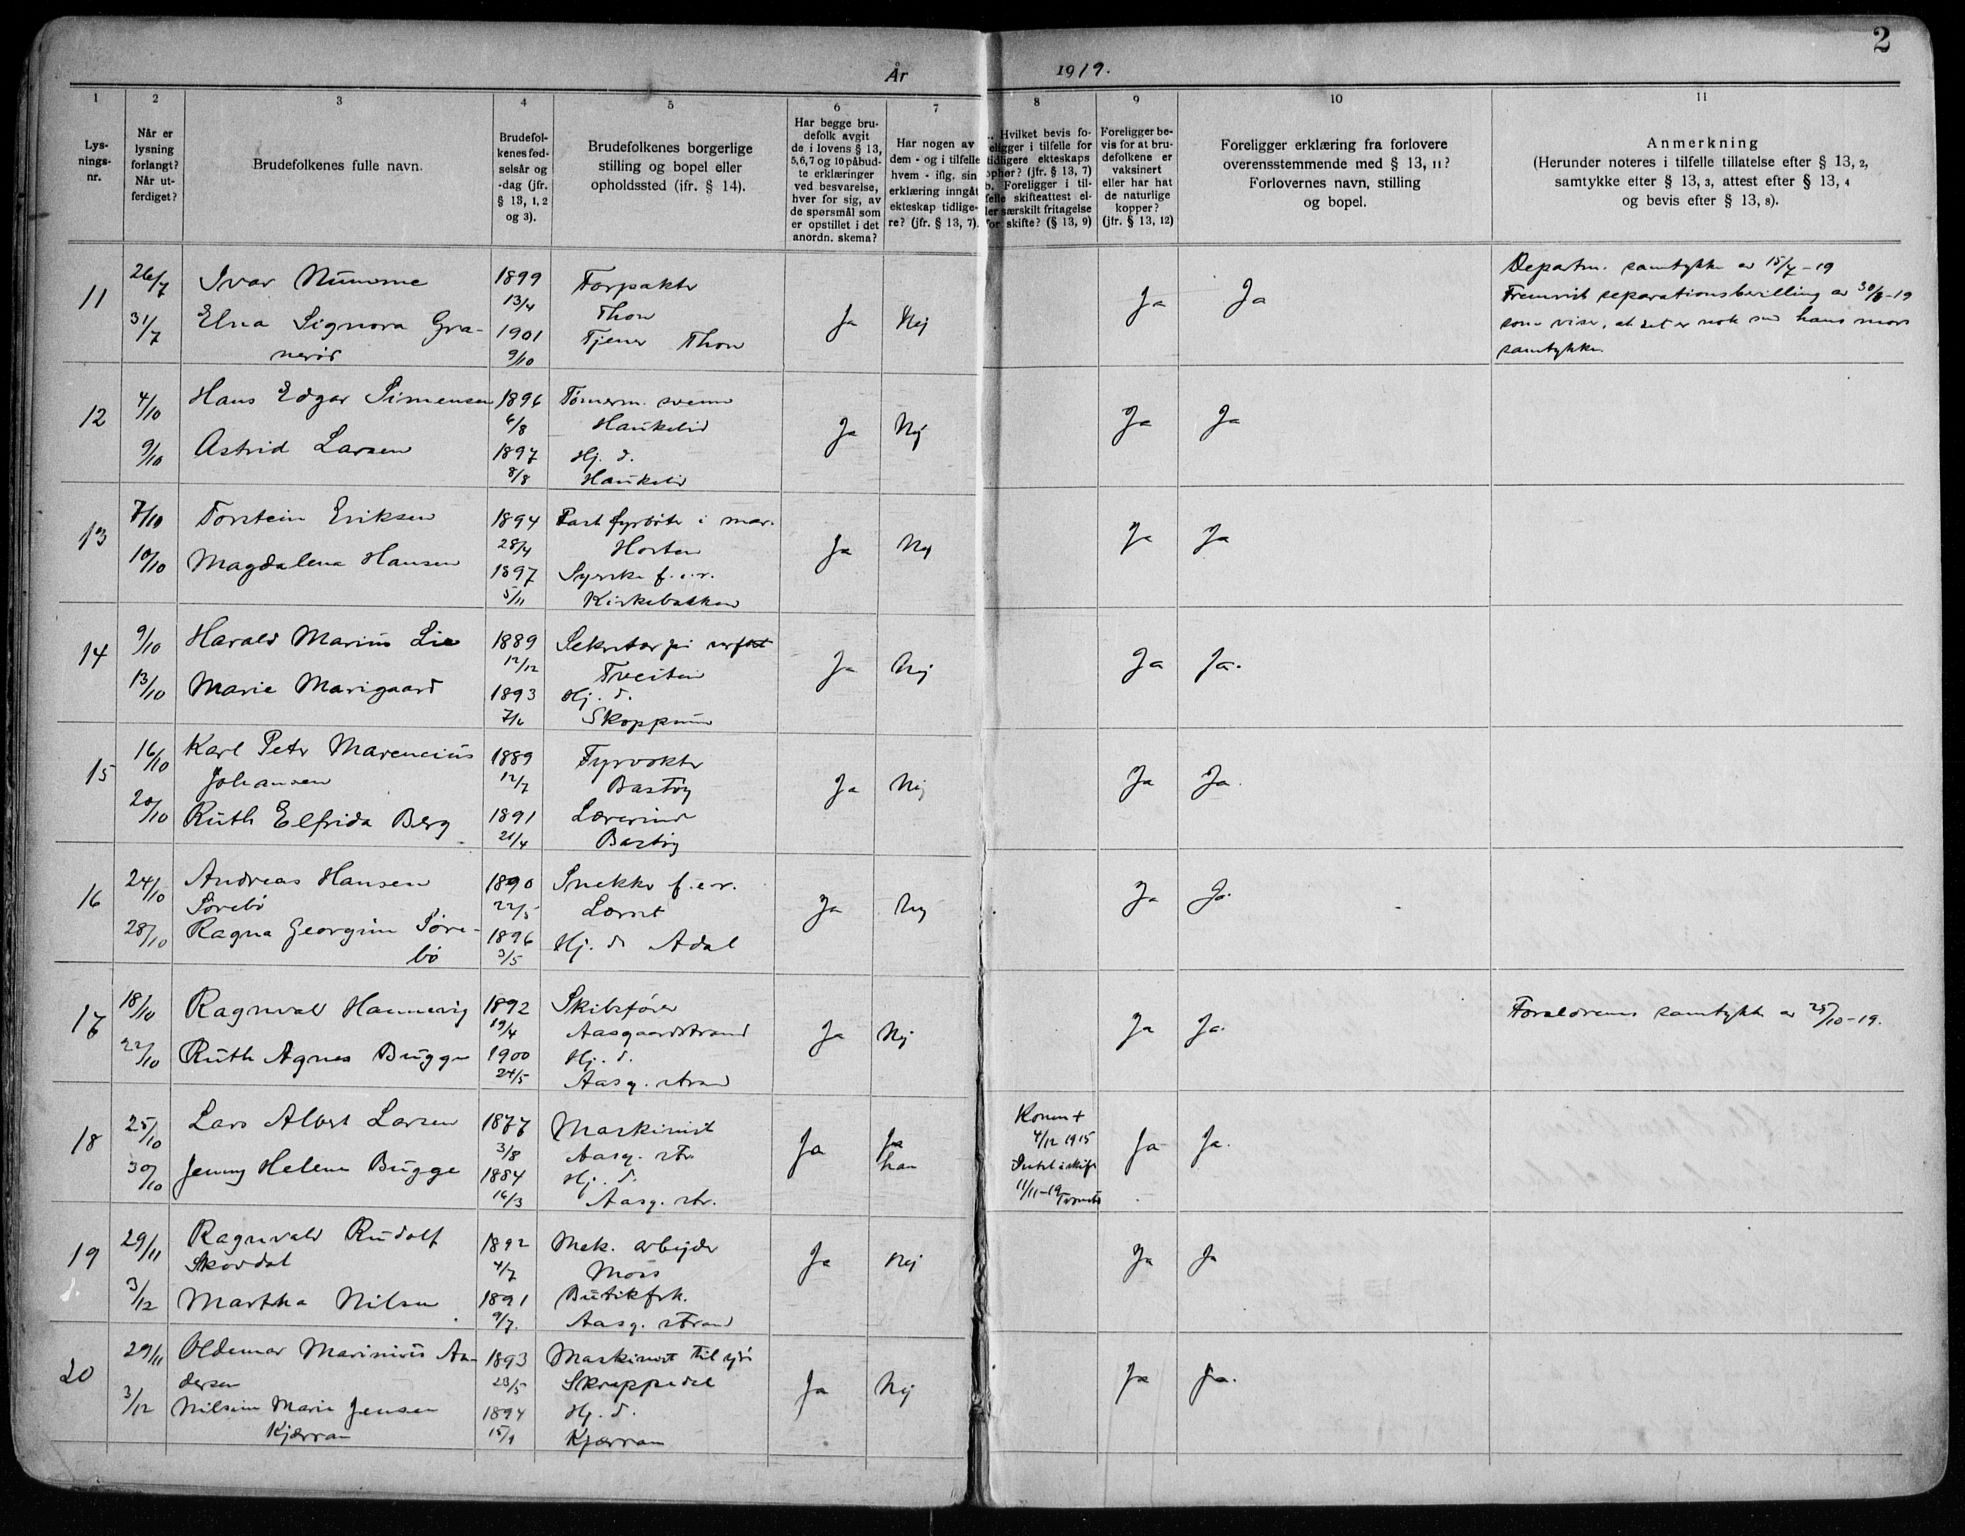 2
År 1919.
1 2 3 4 5 6 7 8 9 10 11
Lys-
nings-
nr.
Når er
lysning
forlangt?
Når ut-
ferdiget?
Brudefolkenes fulle navn.
Brudefol-
kenes fød-
selsår og
-dag (jfr.
§ 13, 1, 2
og 3).
Brudefolkenes borgerlige
stilling og bopel eller
opholdssted (ifr. § 14).
Har begge bru-
defolk avgit
de i lovens § 13,
5,6,7 og 10 påbud-
te erklæringer
ved besvarelse,
hver for sig, av
de spørsmål som
er opstillet i det
anordn. skema?
Har nogen av
dem - og i tilfelle
hvem - iflg. sin
erklæring inngåt
ekteskap tidlige-
re? (jfr. § 13, 7).
Hvilket bevis fo-
religger i tilfelle for
tidligere ekteskaps
ophør? (jfr. § 13, 7)
b. Foreligger i til-
felle skifteattest el-
ler særskilt fritagelse
for skifte? (§ 13, 9)
Foreligger be-
vis for at bru-
defolkene er
vaksinert
eller har hat
de naturlige
kopper?
(jfr. § 13, 12)
Foreligger erklæring fra forlovere
overensstemmende med § 13, 11?
Forlovernes navn, stilling
og bopel.
Anmerkning
(Herunder noteres i tilfelle tillatelse efter § 13, 2,
samtykke efter § 13, 3, attest efter § 13, 4
og bevis efter § 13, 8).
11
26/7
31/7
Ivar Numme
Elna Signora Gra-
nerød
1899
13/4
1901
9/10
Forpakter
Thon
Tjener Thon
Ja
Nej
Ja
Ja
Departm. samtykke av 15/7-19
Fremvist separationsbevilling av 30/8-19
som viser, at det er nok med hans mors
samtykke.
12
4/10
9/10
Hans Edgar Simensen
Astrid Larsen
1896
6/8
1897
8/8
Tømerm. svenn
Haukelid
Hj. d.
Haukelid
Ja
Nej
Ja
Ja
13
7/10
10/10
Torstein Eriksen
Magdalena Hansen
1894
28/4
1897
5/11
Fast fyrbøter i mar.
Horten
Syerske f.e.r.
Kirkebakken
Ja
Nej
Ja
Ja
14
9/10
13/10
Harald Marius Lie
Marie Marigaard
1889
12/12
1893
7/6
Sekretær på verft
Tveiten
Hj. d.
Skoppum
Ja
Nej
Ja
Ja.
15
16/10
20/10
Karl Peter Marencius
Johansen
Ruth Elfrida Berg
1889
12/7
1891
21/4
Fyrvokter
Bastøy
Lærerinde
Bastøy
Ja
Nej
Ja
Ja.
16
24/10
28/10
Andreas Hansen
Sørebø
Ragna Georgine Søre-
bø
1890
22/5
1896
3/5
Snekker f.e.r.
Hj. d. Adal
Ja
Nej
Ja
Ja.
17
18/10
22/10
Ragnvald Hannevig
Ruth Agnes Bugge
1892
19/4
1900
24/5
Skibsfører
Aasgaardstrand
Hj. d.
Aasg. strand
Ja
Nej
Ja
Ja.
Forældrenes samtykke av 25/10-19.
18
25/10
30/10
Lars Albert Larsen
Jenny Helene Bugge
1877
3/8
1884
16/3
Maskinist
Aasg. str.
Hj. d.
Aasg. str.
Ja
Ja
han
Konen +
4/12 1915
11/11-19
Ja
Ja.
19
29/11
3/12
Ragnvald Rudolf
Skovdal
Martha Nilsen
1892
4/7
1891
9/7.
Mek. arbejder
Moss
Butikfrk.
Aasg. strand
Ja
Nej
Ja
Ja
20
29/11
3/12
Oldemar Marinius An-
dersen
Nilsine Marie Jensen
Kjærran
1893
23/5
1894
15/9
Maskinist til sjøs
Skrappedal
Hj. d.
Kjærran
Ja
Nej
Ja
Ja.